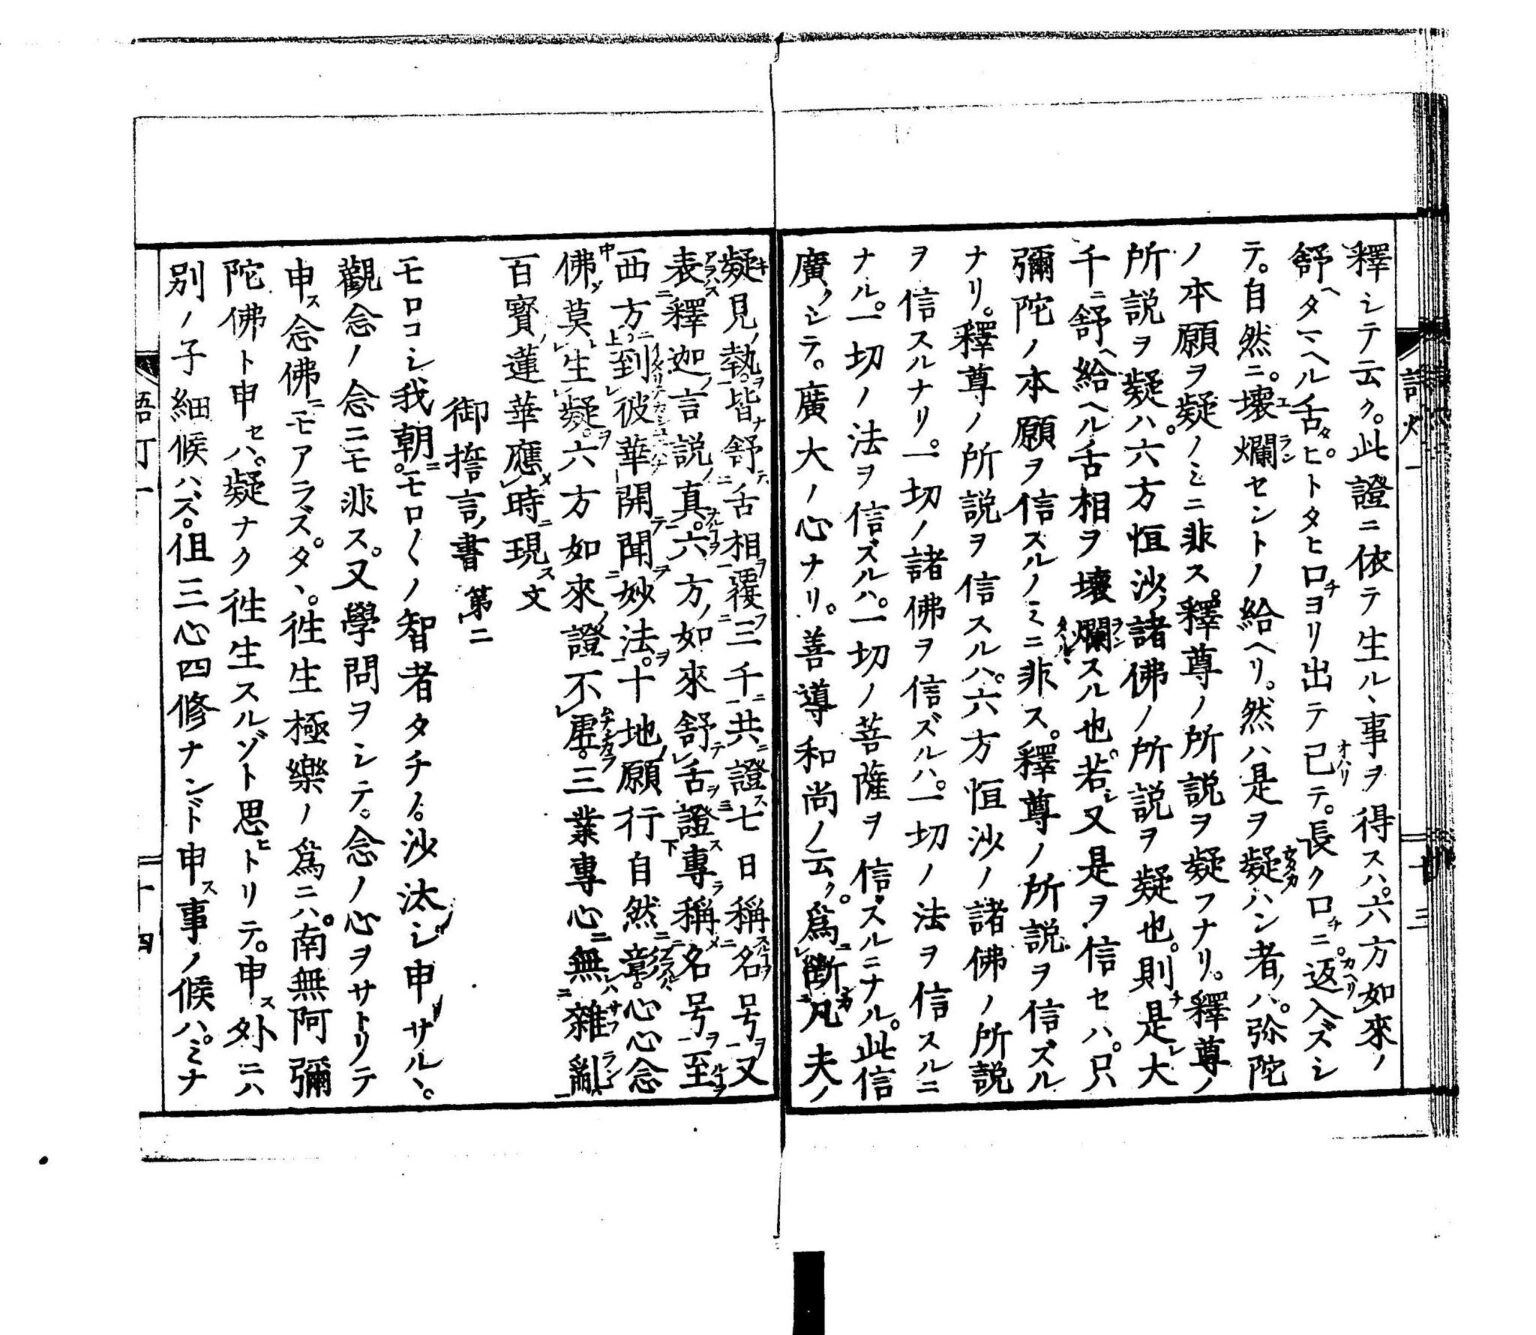 釋シテ云ク。此證ニ依テ生ルヽ事ヲ得スハ。六方如來ノ
舒ヘタマヘル舌タヒトタヒ口ヨリ出テ已テ。長ク口ニ返入ズシ
テ。自然ニ壞爛セントノ給ヘリ。然ハ是ヲ疑ハン者ハ。弥陀
ノ本願ヲ疑ノミニ非ス。釋尊ノ所説ヲ疑フナリ。釋尊ノ
所説ヲ疑ハ六方恒沙ノ諸佛ノ所説ヲ疑也。則是レ大
千ニ舒ヘ給ヘル舌相ヲ壞爛スル也。若又是ヲ信セハ。只
彌陀ノ本願ヲ信スルノミニ非ス。釋尊ノ所説ヲ信ズル
ナリ。釋尊ノ所説ヲ信スルハ。六方恒沙ノ諸佛ノ所説
ヲ信スルナリ。一切ノ諸佛ヲ信ズルハ。一切ノ法ヲ信スルニ
ナル。一切ノ法ヲ信ズルハ。一切ノ菩薩ヲ信スルニナル。此信
廣クシテ。廣大ノ心ナリ。善導和尚ノ云ク。爲断凡夫ノ
疑見ノ執ヲ皆舒舌相覆三千共證七日稱名号又
表釋迦言説ノ真六方ノ如來舒舌證專稱名号至
西方到彼華開聞妙法十地ノ願行自然彰心心念
佛莫生疑六方如來ノ證不虛三業專心無雜亂
百寳ノ蓮華應時現ス文
御誓言ノ書 第二
モロコシ我朝ニモロ〱ノ智者タチノ。沙汰シ申サルヽ。
觀念ノ念ニモ非ス。又學問ヲシテ。念ノ心ヲサトリテ
申ス念佛ニモアラズ。タヽ。徃生極樂ノ爲ニハ。南無阿彌
陀佛ト申セハ。疑ナク徃生スルゾト思ヒトリテ。申ス外ニハ
別ノ子細候ハズ。但三心四修ナンド申ス事ノ候ハ。ミナ